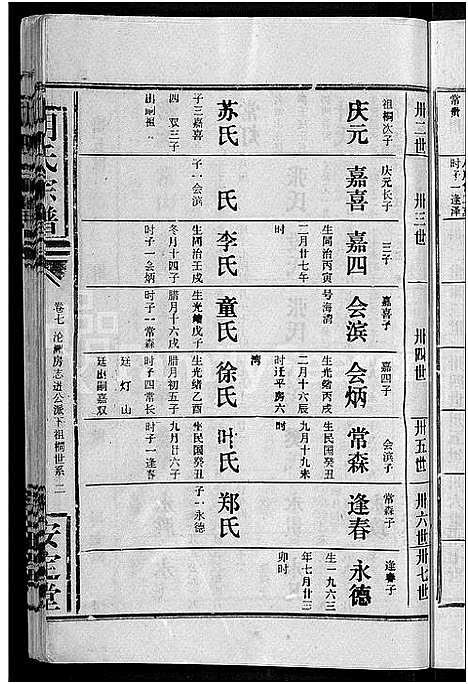 常衡
卅二世
卅三世
卅四世
卅五世
卅六世
卅七世
庆元
祖桐次子
苏氏
子三嘉喜
四 双三子
出嗣祖
嘉喜
庆元长子
氏
子一会滨
嘉四
三子
生同治丙寅
二月廿七年
时
李氏
生同治壬戌
冬月十四子
时子一会炳
会滨
嘉喜子
号海湾
童氏
生光绪戊子
腊月十六戌
时子一常森
会炳
嘉四子
生光绪丙戌
二月十六辰
时迁平房六
湾
徐氏
生光绪乙酉
腊月初五子
时子四常长
廷 灯 山
廷出嗣嘉双
常森
会滨子
生民国癸丑
九月十九来
时
叶氏
生民国癸丑
九月廿六子
时子一逢春
逢春
常森子
郑氏
子一永德
永德
逢春子
生一九六三
年七月廿三
卯时
氏宗谱
卷七 沦洲房志进公派下祖桐世系 二
安定堂